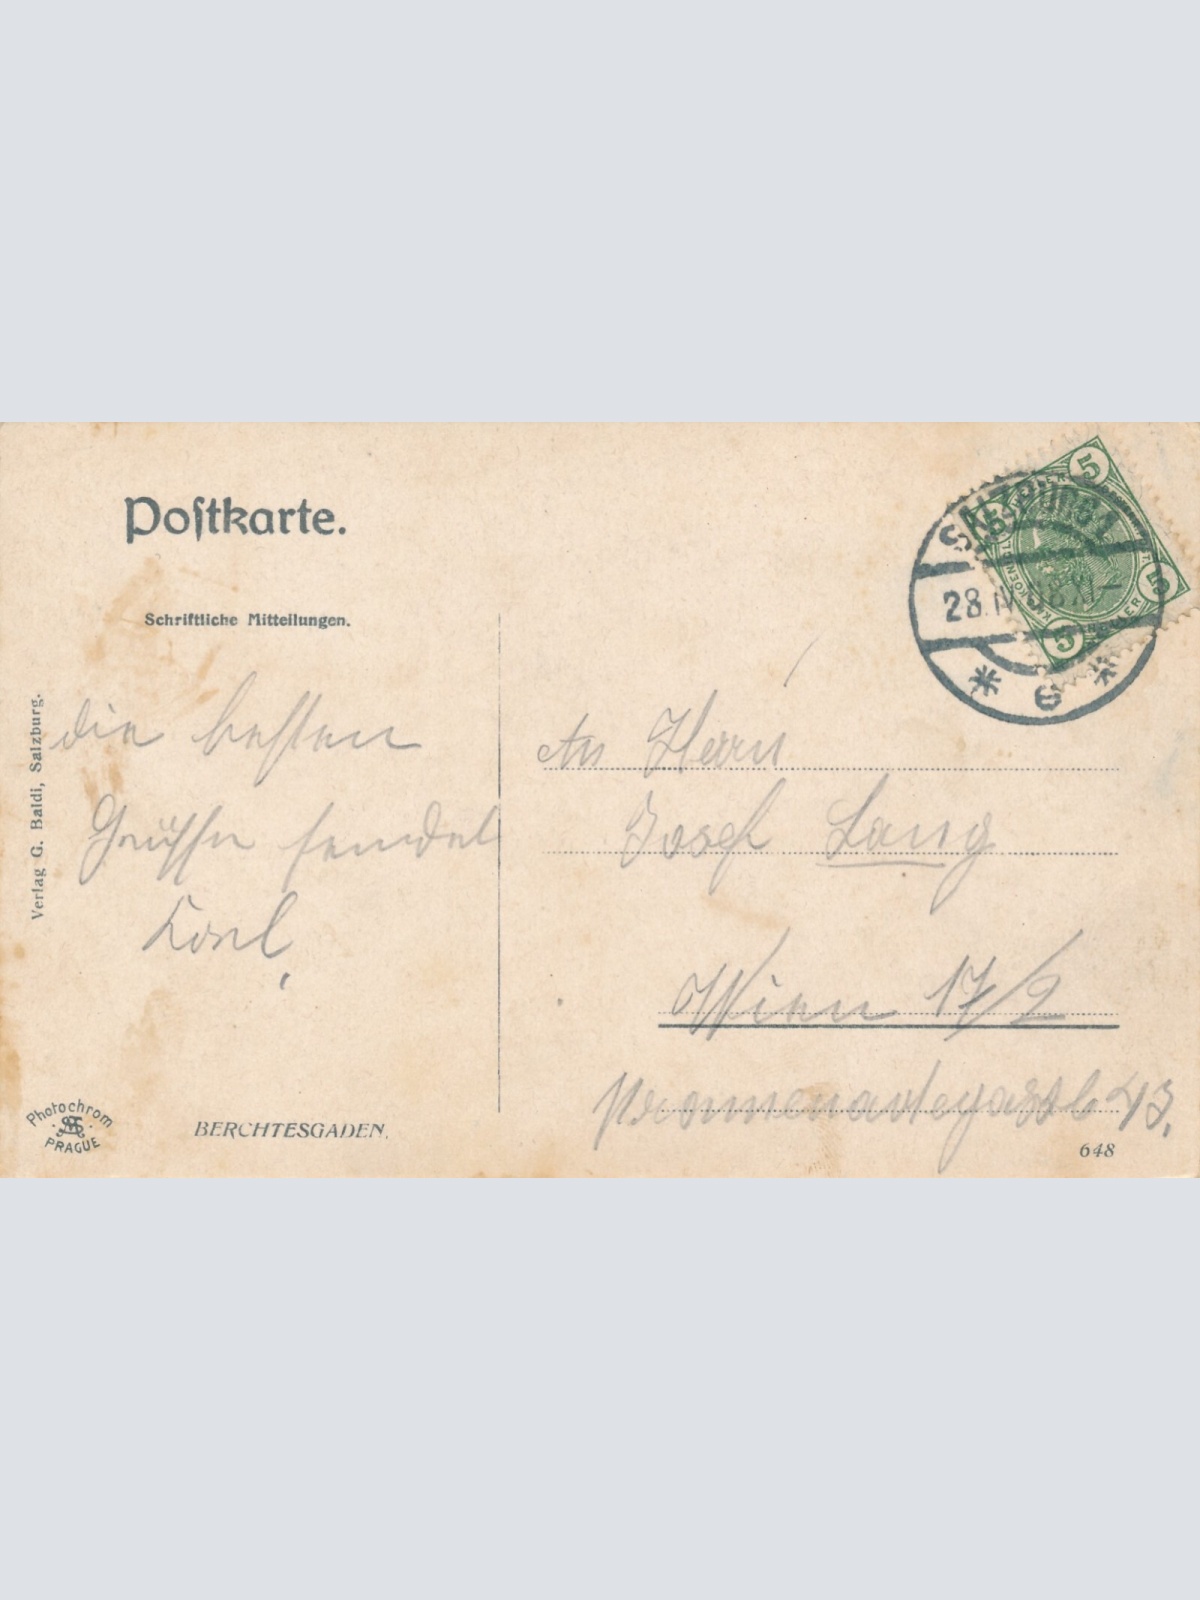 Postkarte.
Schriftliche Mitteilungen.
Verlag G. Baldi, Salzburg.
die besten
Grüße sendet
Karl
Photochrom
PRAGUE
BERCHTESGADEN.
SALZBURG
28.IV XI-
* e *
5
5
5
5
HELLER
An Herrn
Josef Lang
Wien 17/2
Promenadegasse 43.
648